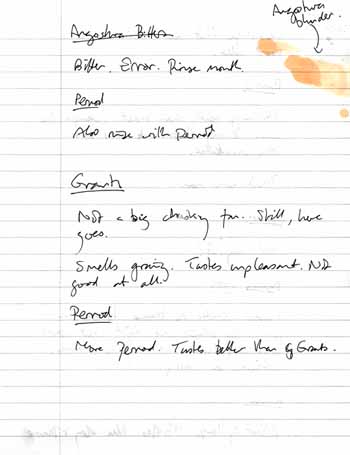 Angostura Bitters
Angostura
blunder.
Bitter. Error. Rinse mouth.
Pernod
Also rinse with Pernod
Grants
Not a big drinky fan. Still, here
goes.
Smells grainy. Tastes unpleasant. Not
good at all.
Pernod
More Pernod. Tastes better than Grants.